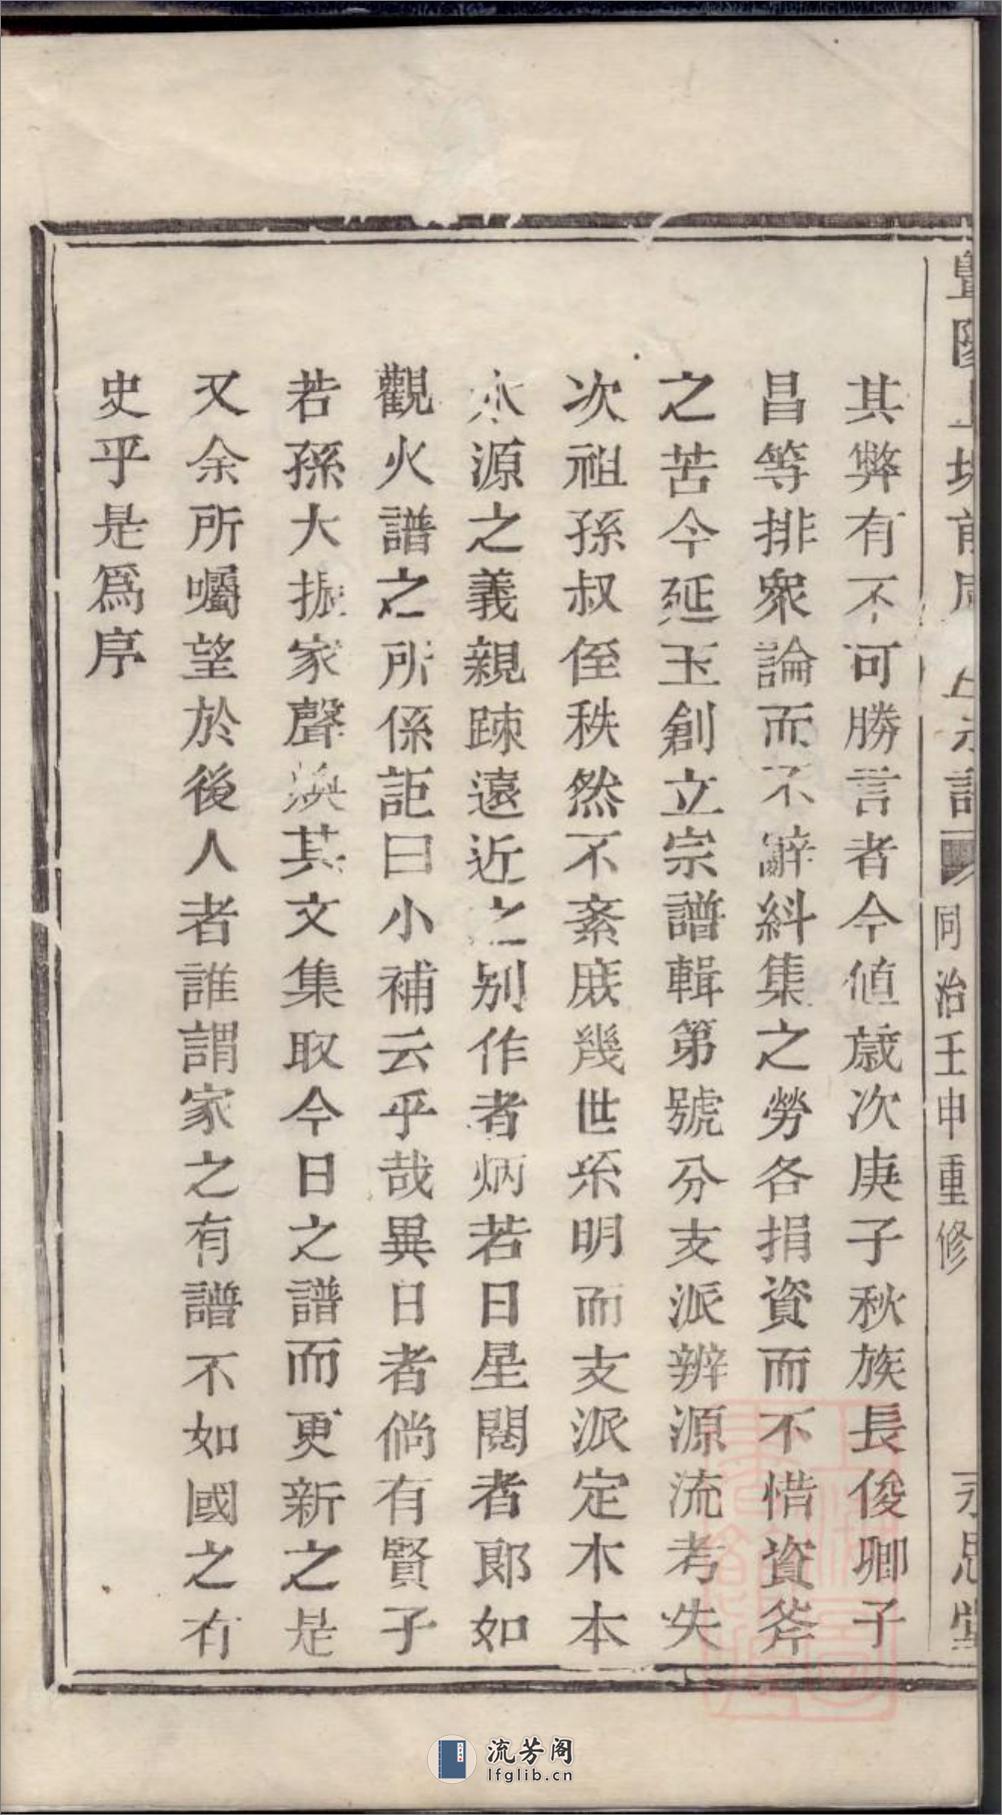 暨陽上坊前周氏宗譜 同治壬申重修 永思堂
其弊有不可勝言者今値歲次庚子秋族長俊卿子
昌等排衆論而不辭糾集之勞各捐資而不惜資斧
之苦今延玉創立宗譜輯第號分支派辨源流考失
次祖孫叔侄秩然不紊庶幾世系明而支派定木本
水源之義親踈遠近之别作者炳若日星閱者郎如
觀火譜之所係詎曰小補云乎哉異日者倘有賢子
若孫大振家聲渙其文集取今日之譜而更新之是
又余所囑望於後人者誰謂家之有譜不如國之有
史乎是爲序
流芳阁
lfglib.cn